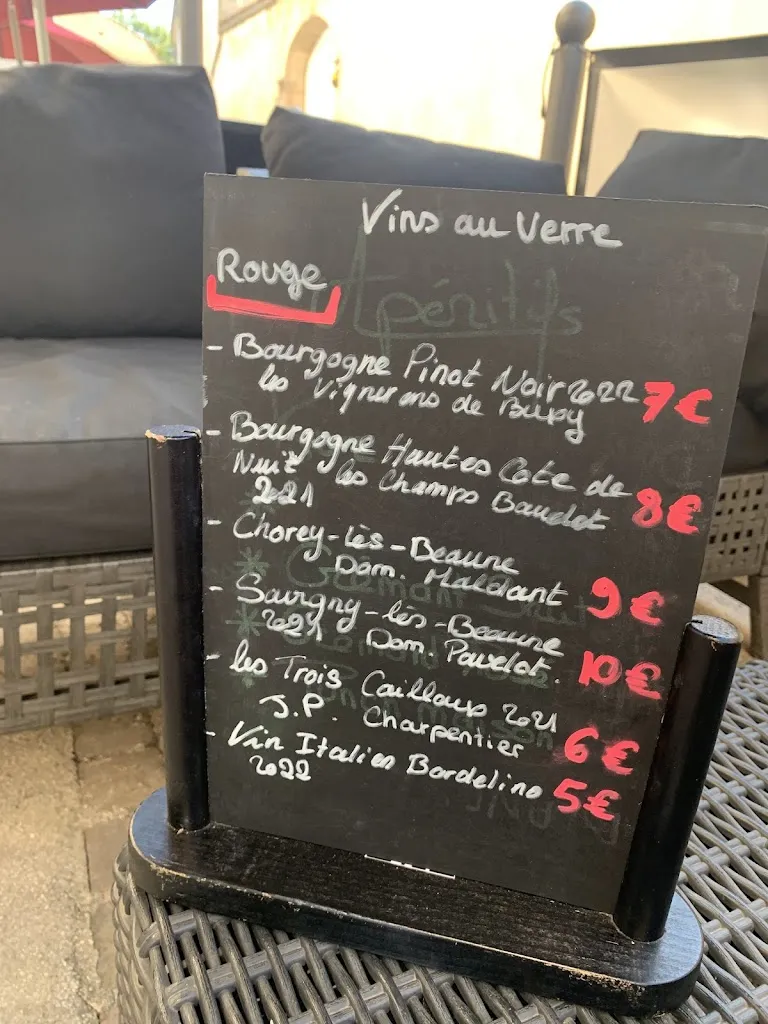 Vins au Verre
Rouge
Apéritifs
- Bourgogne Pinot Noir 2022 7€
les Vignerons de Buxy
- Bourgogne Hautes Cote de
Nuit les Champs Baudot 8€
2021
- Chorey-lès-Beaune
Dom. Maldant 9€
- Savigny-lès-Beaune
2021 Dom. Pavelot. 10€
- les Trois Cailloux 2021
J.P. Charpentier 6€
- Vin Italien Bardolino 5€
2022